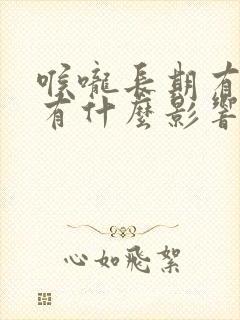 喉嚨長期有
有什麼影響
心如飛絮